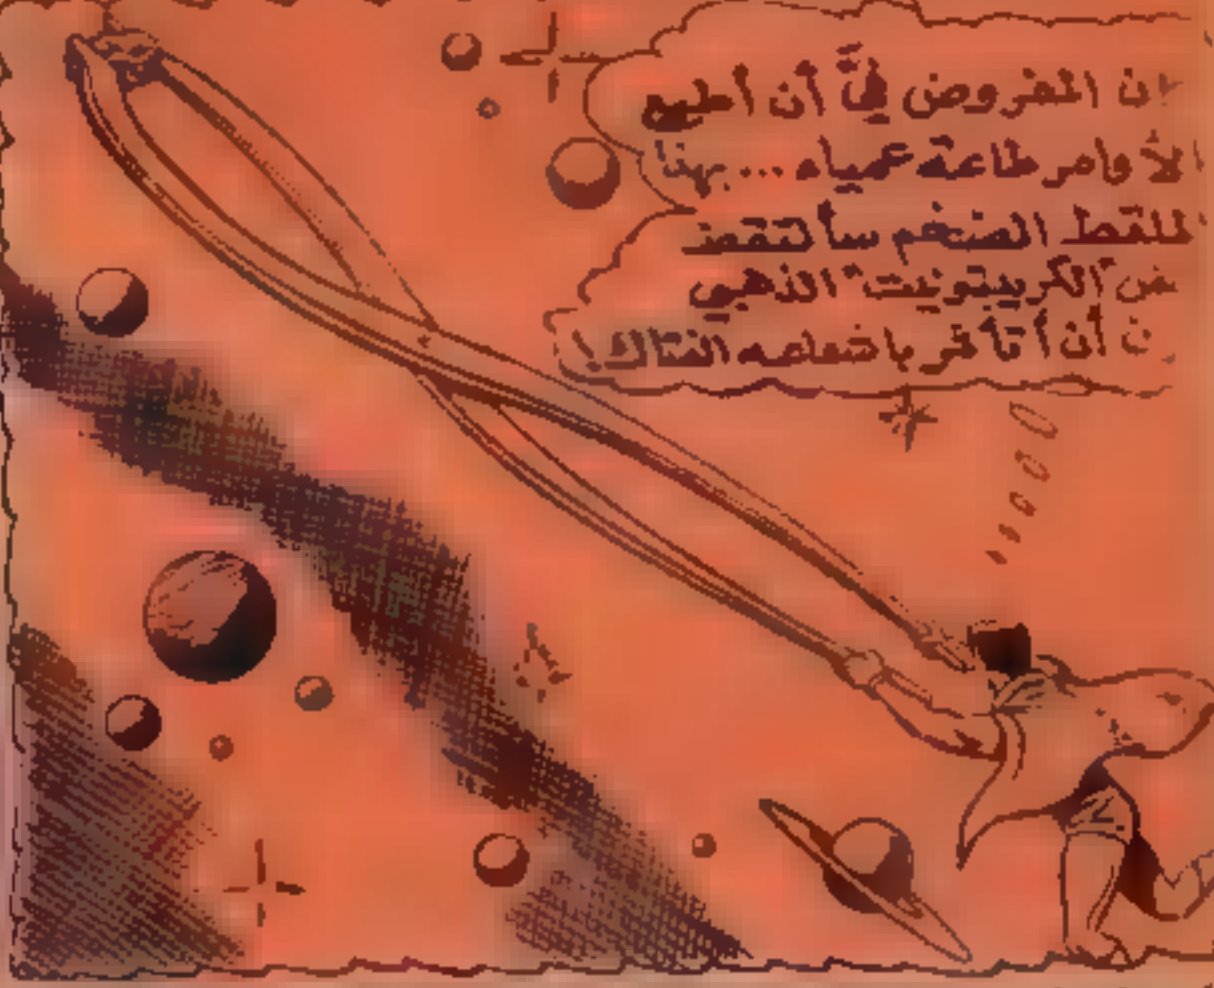 ان المفروض فيَّ أن أطيع
الأوامر طاعة عمياء... بهذا
الملقط الضخم سألتقط
الكريبتونيت" الذهبي
أن أتأثر باشعاعه الفتاك!